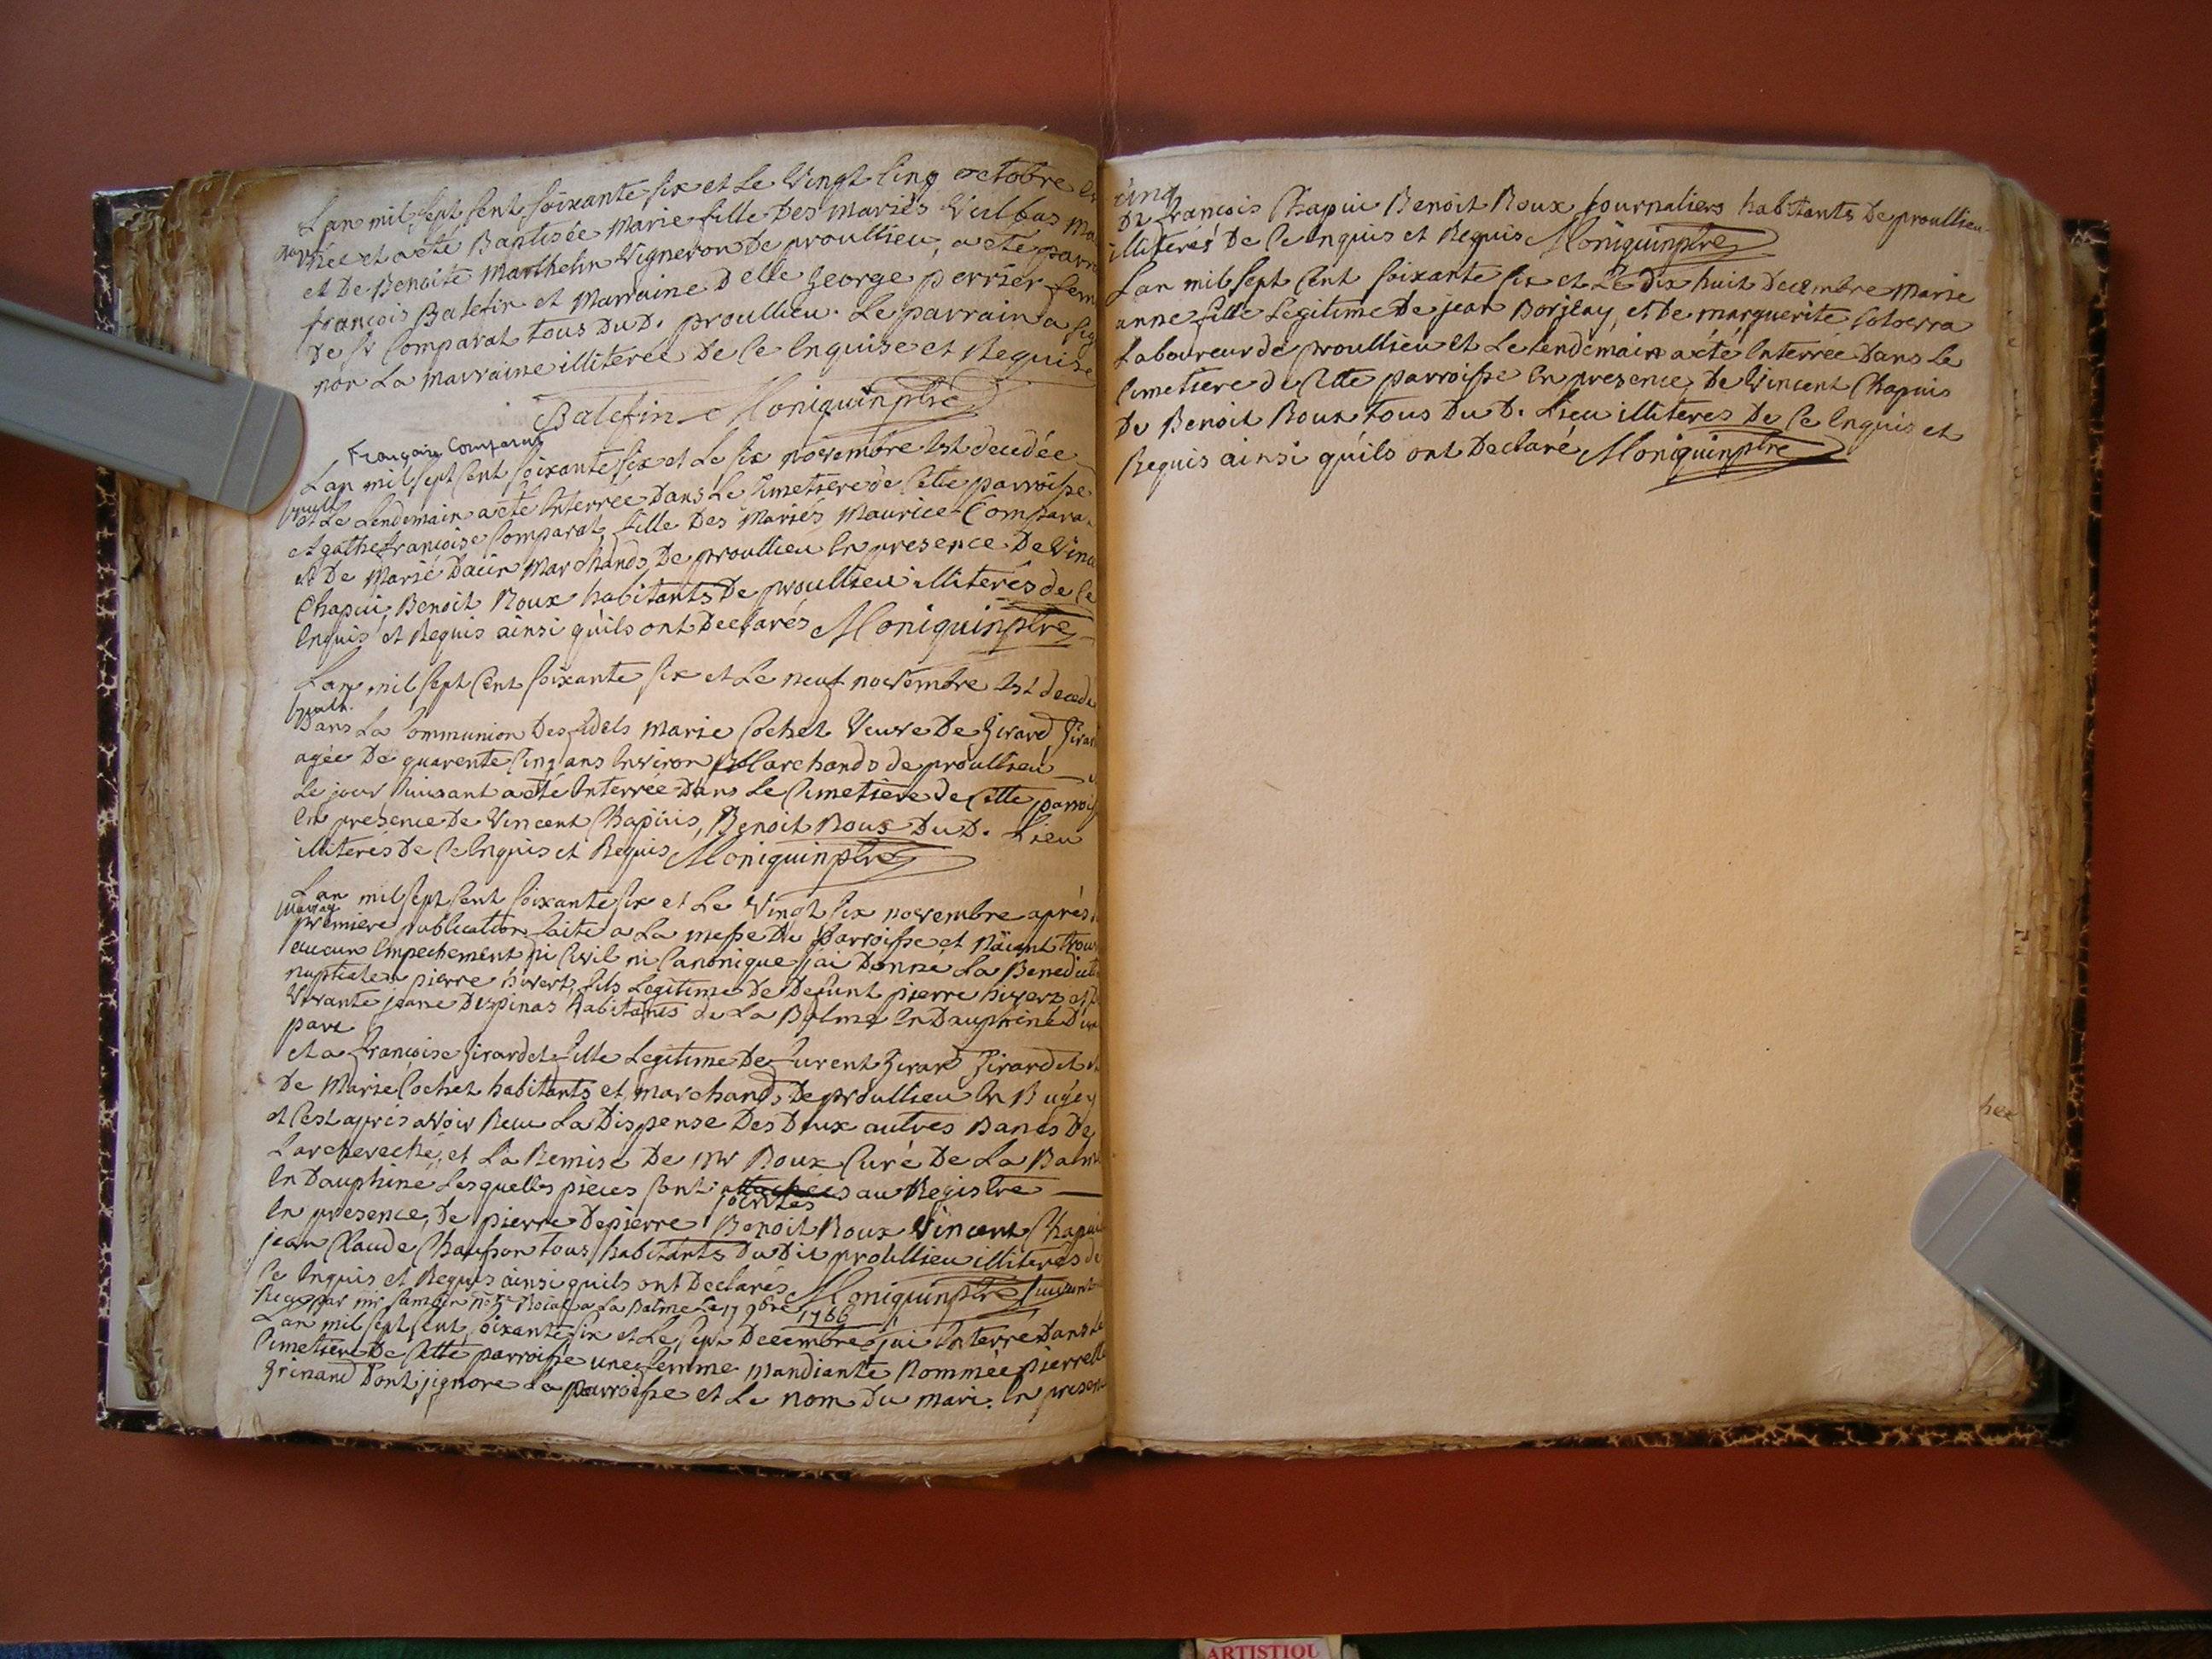 Lan mil sept sent soixante six et Le Vingt Cinq octobre
née et a eté Baptisée Marie fille Des mariés Vulbas
et De Benoite Marthelin Vigneron De proullieu, a eté
francois Balefin et Marraine Delle George perrier
De Sr Comparat tous Du D. proullieu. Le parrain a
non La marraine illiterée De Ce Enquise et Requise
Balefin Moniquin ptre
Lan mil sept Cent soixante six et Le six novembre Est decedée
sepult
et Le Lendemain a eté Enterrée Dans Le Cimetiere de Cette parroisse
Agathe francoise Comparat fille Des Mariés Maurice Compara
et De Marie Dacin Marchands De proullieu En presence De
Chapui, Benoit Roux habitants De proullieu illiterés de Ce
Enquis et Requis ainsi qu'ils ont Declarés Moniquin ptre
Lan mil sept Cent soixante six et Le neuf novembre Est decedé
sepult.
Dans La Communion Des fidels Marie Cochet Veuve De Girard
agée De quarente Cinq ans Environ Marchands de proullieu
Le jour suivant a eté Enterrée Dans Le Cimetiere de Cette
En presence De Vincent Chapuis, Benoit Roux Du D. Lieu
illiterés De Ce Enquis et Requis Moniquin ptre
Lan mil sept Cent soixante six et Le Vingt six novembre aprés
Mariag
premiere publication faite a La messe De parroisse et
aucun Empechement ni Civil ni Canonique jai Donné La
nuptiale a pierre hivert fils Legitime De Defunt pierre hivert
Vivante jeane Despinas habitants de La Balme En Dauphiné
part
et a francoise Girardet fille Legitime De furent Girard Girardet
De Marie Cochet habitants et marchands De proullieu En Bugey
et Cest aprés avoir Recu La Dispense Des Deux autres Bancs De
Larcheveché, et La Remise De Mr Roux Curé De La
En Dauphiné Lesquelles pieces sont attachées au Registre
jointes
En presence, De pierre Depierre Benoit Roux Vincent
jean Claude Chanson tous habitants Du Dit proullieu illiterés
Ce Enquis et Requis ainsi quils ont Declarés Moniquin ptre
a La Balme Le 17 9bre 1766
Lan mil sept Cent soixante six et Le sept Decembre jai Enterré Dans
Cimetiere De Cette parroisse une femme mandiante Nommée
Grinand Dont jignore La parroisse et Le nom Du mari. En
cinq
De francois Chapui Benoit Roux journaliers habitants De proullieu
illiterés De Ce Enquis et Requis Moniquin ptre
Lan mil sept Cent soixante six et Le Dix huit Decembre Marie
anne fille Legitime De jean Borjeay, et De marguerite
Laboureur de proullieu et Le Lendemain a eté Enterrée Dans Le
Cimetiere de Cette parroisse En presence, De Vincent Chapuis
De Benoit Roux tous Du D. Lieu illiteres De Ce Enquis et
Requis ainsi qu'ils ont Declaré Moniquin ptre
ARTISTIQU